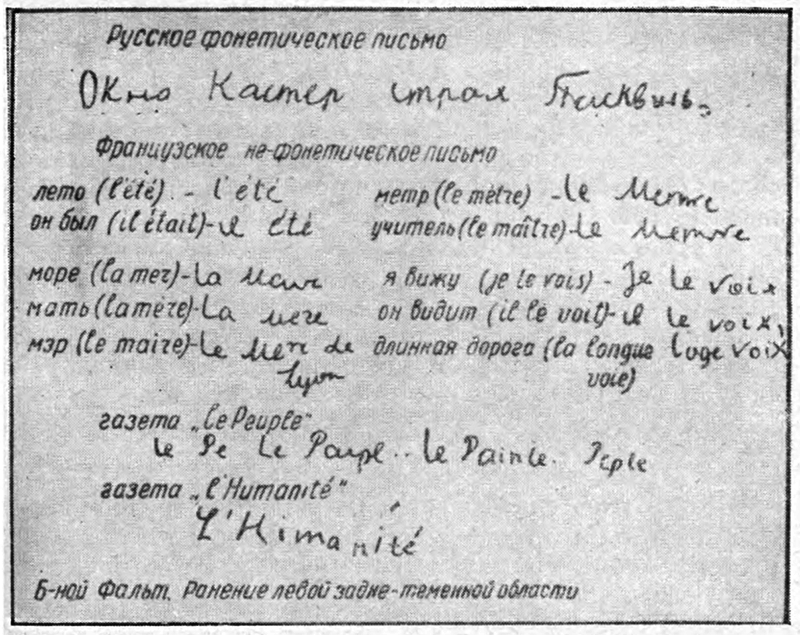 Русское фонетическое письмо
Окно Кастер страх
Французское не-фонетическое письмо
лето (l'été) - l'été метр (le mètre) - le Mermre
он был (il était)-il été учитель (le maître)-le Memvre
море (la mer)-la Meur я вижу (je le vois) - Je le voix
мать (la mère)-la mere он видит (il le voit)-il le voix,
мэр (le maire)-le Mere de длинная дорога (la longue loge voix
Lyon voie)
газета „Le Peuple"
le Pe Le Paupl.. le Painle. Peple
газета „l'Humanité"
L'Himanité
Б-ной Фальт. Ранение левой задне-теменной области